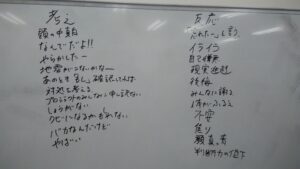 考え
頭の中真白
なんでだよ!!
やらかしたー
地震がこないかなー
あのとき 確認してれば
対処を考える
プロジェクトのみんなに申し訳ない
しょうがない
クビになるかもしれない
バカなんだけど
やばい
反応
と言う
イライラ
自己嫌悪
現実逃避
後悔
みんなに謝る
体がふるえる
不安
焦り
顔真っ青
判断力の低下